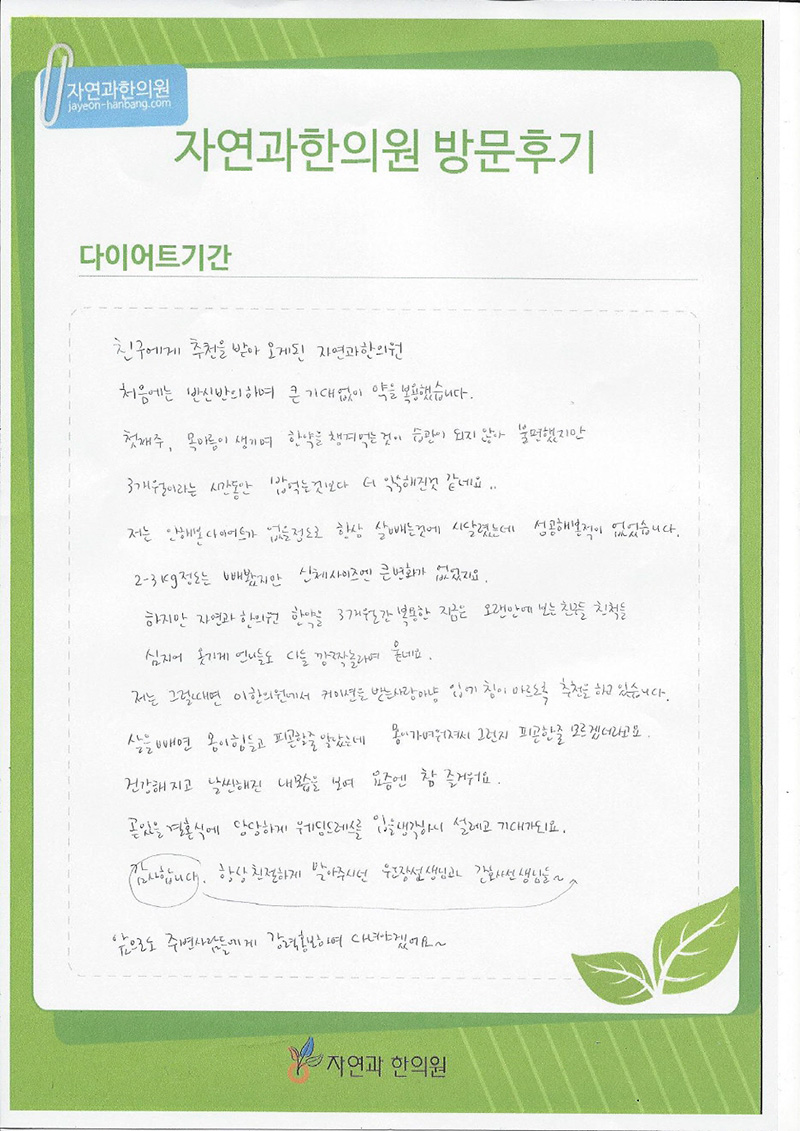 자연과한의원
jayeon-hanbang.com
자연과한의원 방문후기
다이어트기간
친구에게 추천을 받아 오게된 자연과한의원
처음에는 반신반의하며 큰 기대없이 약을 복용했습니다.
첫째주, 목마름이 생기며 한약을 챙겨먹는것이 습관이 되지 않아 불편했지만
3개월이라는 시간동안 밥먹는것보다 더 익숙해진것 같네요..
저는 안해본 다이어트가 없을정도로 항상 살빼는것에 시달렸는데 성공해본적이 없었습니다.
2-3kg정도는 빼봤지만 신체사이즈엔 큰변화가 없었지요.
하지만 자연과한의원 한약을 3개월간 복용한 지금은 오랜만에 보는 친구들 친척들
심지어 옷가게 언니들도 다들 깜짝놀라며 묻네요.
저는 그럴때면 이한의원에서 커미션을 받는사람마냥 입에 침이 마르도록 추천을 하고 있습니다.
살을빼면 몸이힘들고 피곤할줄 알았는데 몸이가벼워져서 그런지 피곤한줄 모르겠더라고요.
건강해지고 날씬해진 내모습을 보며 요즘엔 참 즐거워요.
곧있을 결혼식에 당당하게 웨딩드레스를 입을생각하니 설레고 기대가되요.
감사합니다. 항상친절하게 맞아주시던 원장선생님과 간호사선생님들~
앞으로도 주변사람들에게 강력홍보하며 다녀야겠어요~
자연과 한의원